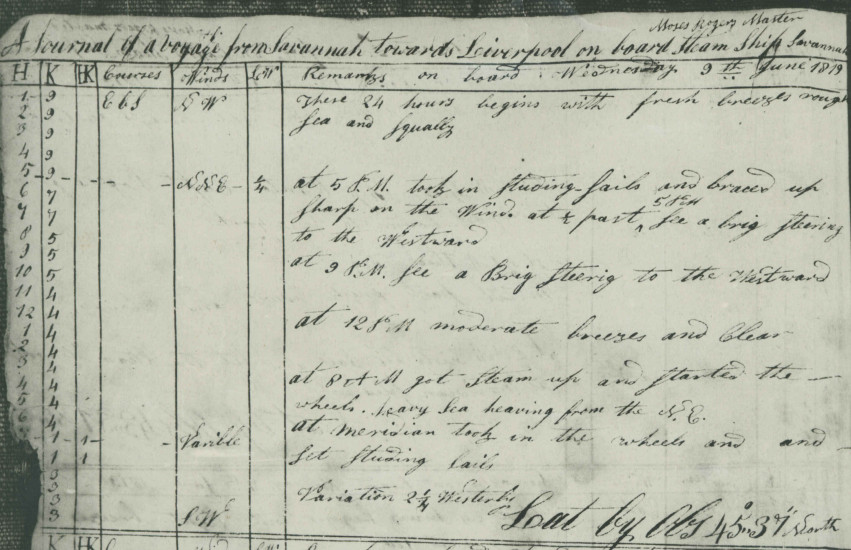 Moses Rogers Master
A Journal of a voyage from Savannah towards Liverpool on board Steam Ship Savannah
H K HK Courses Winds LW Remarks on board Wednesday 9th June 1819
1 9 E b S N W These 24 hours begins with fresh breezes rough
2 9 Sea and Squally
3 9
4 9
5 9 N N E 1/4 at 5 P.M. took in studing sails and braced up
6 7 sharp on the Wind. at 1/2 past 5 P.M. See a brig steering
7 7
8 5 to the Westward
9 5 at 9 P.M. See a Brig steerig to the Westward
10 5
11 4
12 4 at 12 P.M moderate breezes and Clear
1 4
2 4
3 4 at 8 A M got Steam up and started the
4 4
5 4 wheels. heavy Sea heaving from the N.E.
4 at meridian took in the wheels and and
1 1 Varible
1 1 Set studing sails
3
3 Variation 2 1/4 Westerly
3 S W Lat by Obs 45° 37" North
K HK